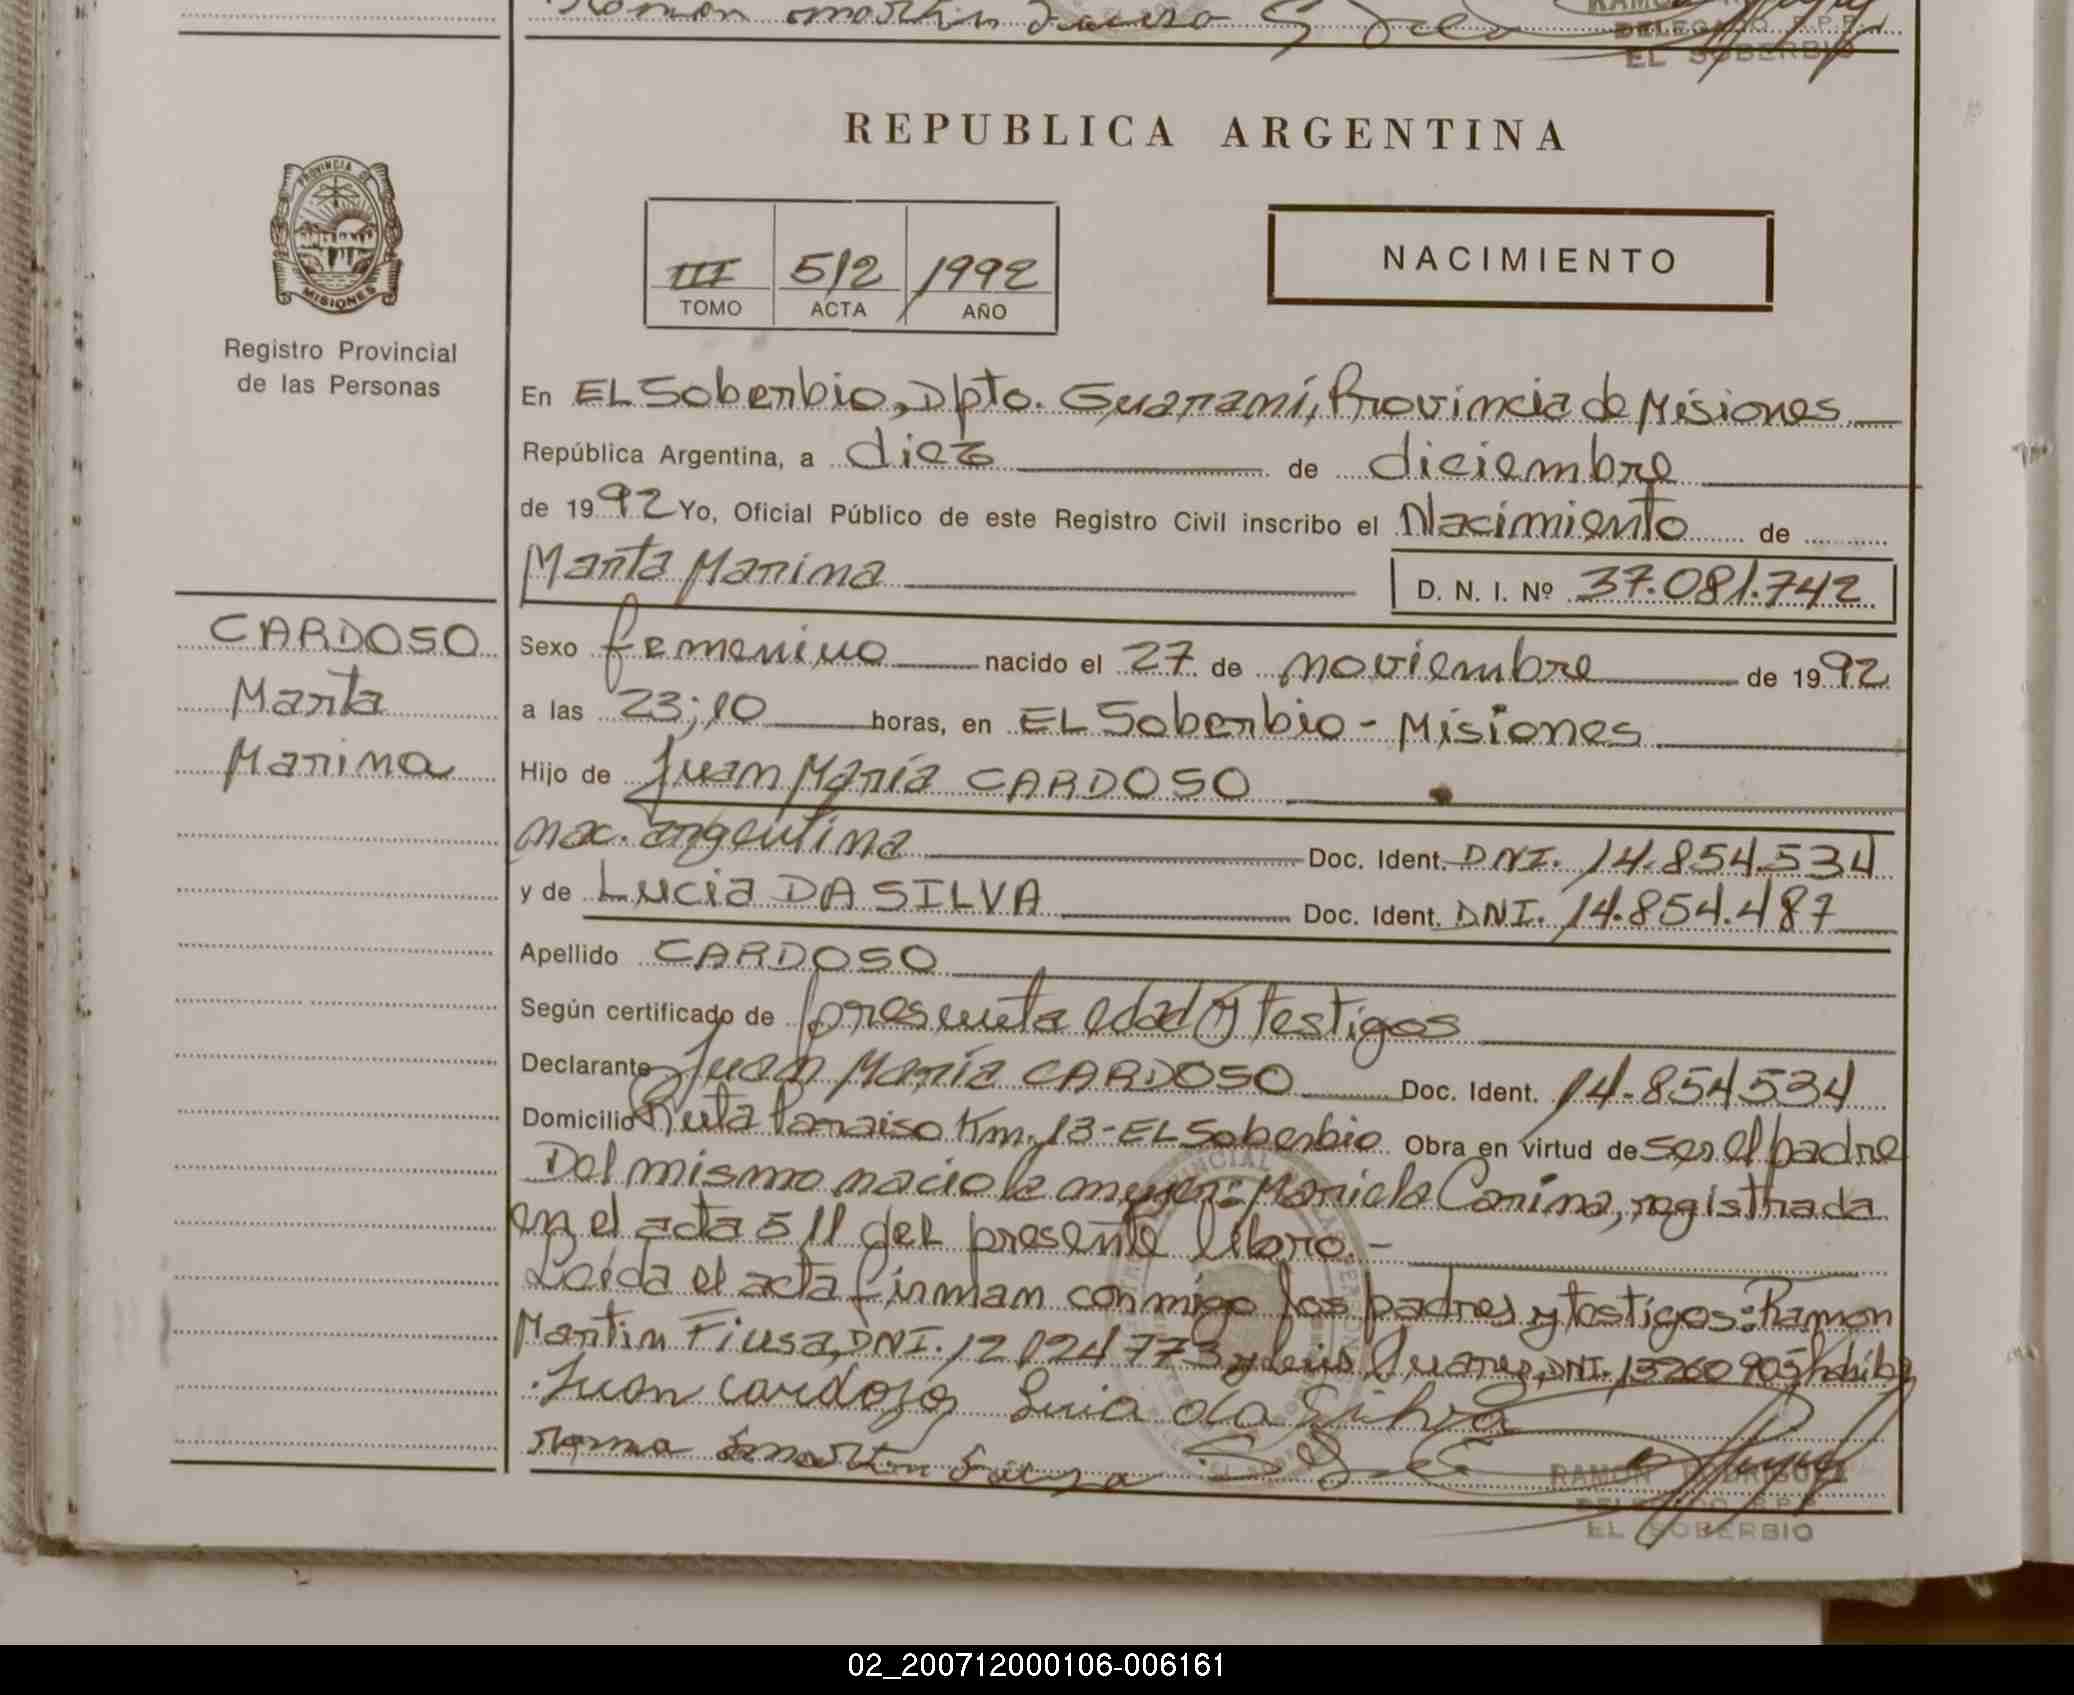 DELEGADO R.P.P.
EL SOBERBIO
REPUBLICA ARGENTINA
PROVINCIA DE
MISIONES
Registro Provincial
de las Personas
III 512 1992
TOMO ACTA AÑO
NACIMIENTO
En EL Soberbio, Dpto. Guaraní, Provincia de Misiones
República Argentina, a diez de diciembre
de 1992 Yo, Oficial Público de este Registro Civil inscribo el Nacimiento de
Marta Marina D. N. I. Nº 37.081.742
CARDOSO
Marta
Marina
Sexo femenino nacido el 27 de noviembre de 1992
a las 23;10 horas, en EL Soberbio - Misiones
Hijo de Juan María CARDOSO
nac. argentina Doc. Ident. DNI. 14.854.534
y de Lucia DA SILVA Doc. Ident. DNI. 14.854.487
Apellido CARDOSO
Según certificado de presunta edad y testigos
Declarante Juan María CARDOSO Doc. Ident. 14.854534
Domicilio Ruta Paraiso Km. 13 - EL Soberbio Obra en virtud de ser el padre
Del mismo nacio la mujer: Mariela Carina, registrada
en el acta 511 del presente libro.-
Leída el acta firman conmigo los padres y testigos: Ramon
Martin Fiusa, DNI. 12 124 773 y Luis Suarez, DNI. 13260905
Juan cardozo Lucia da Silva
RAMON RODRIGUEZ
DELEGADO R.P.P.
EL SOBERBIO
02_200712000106-006161